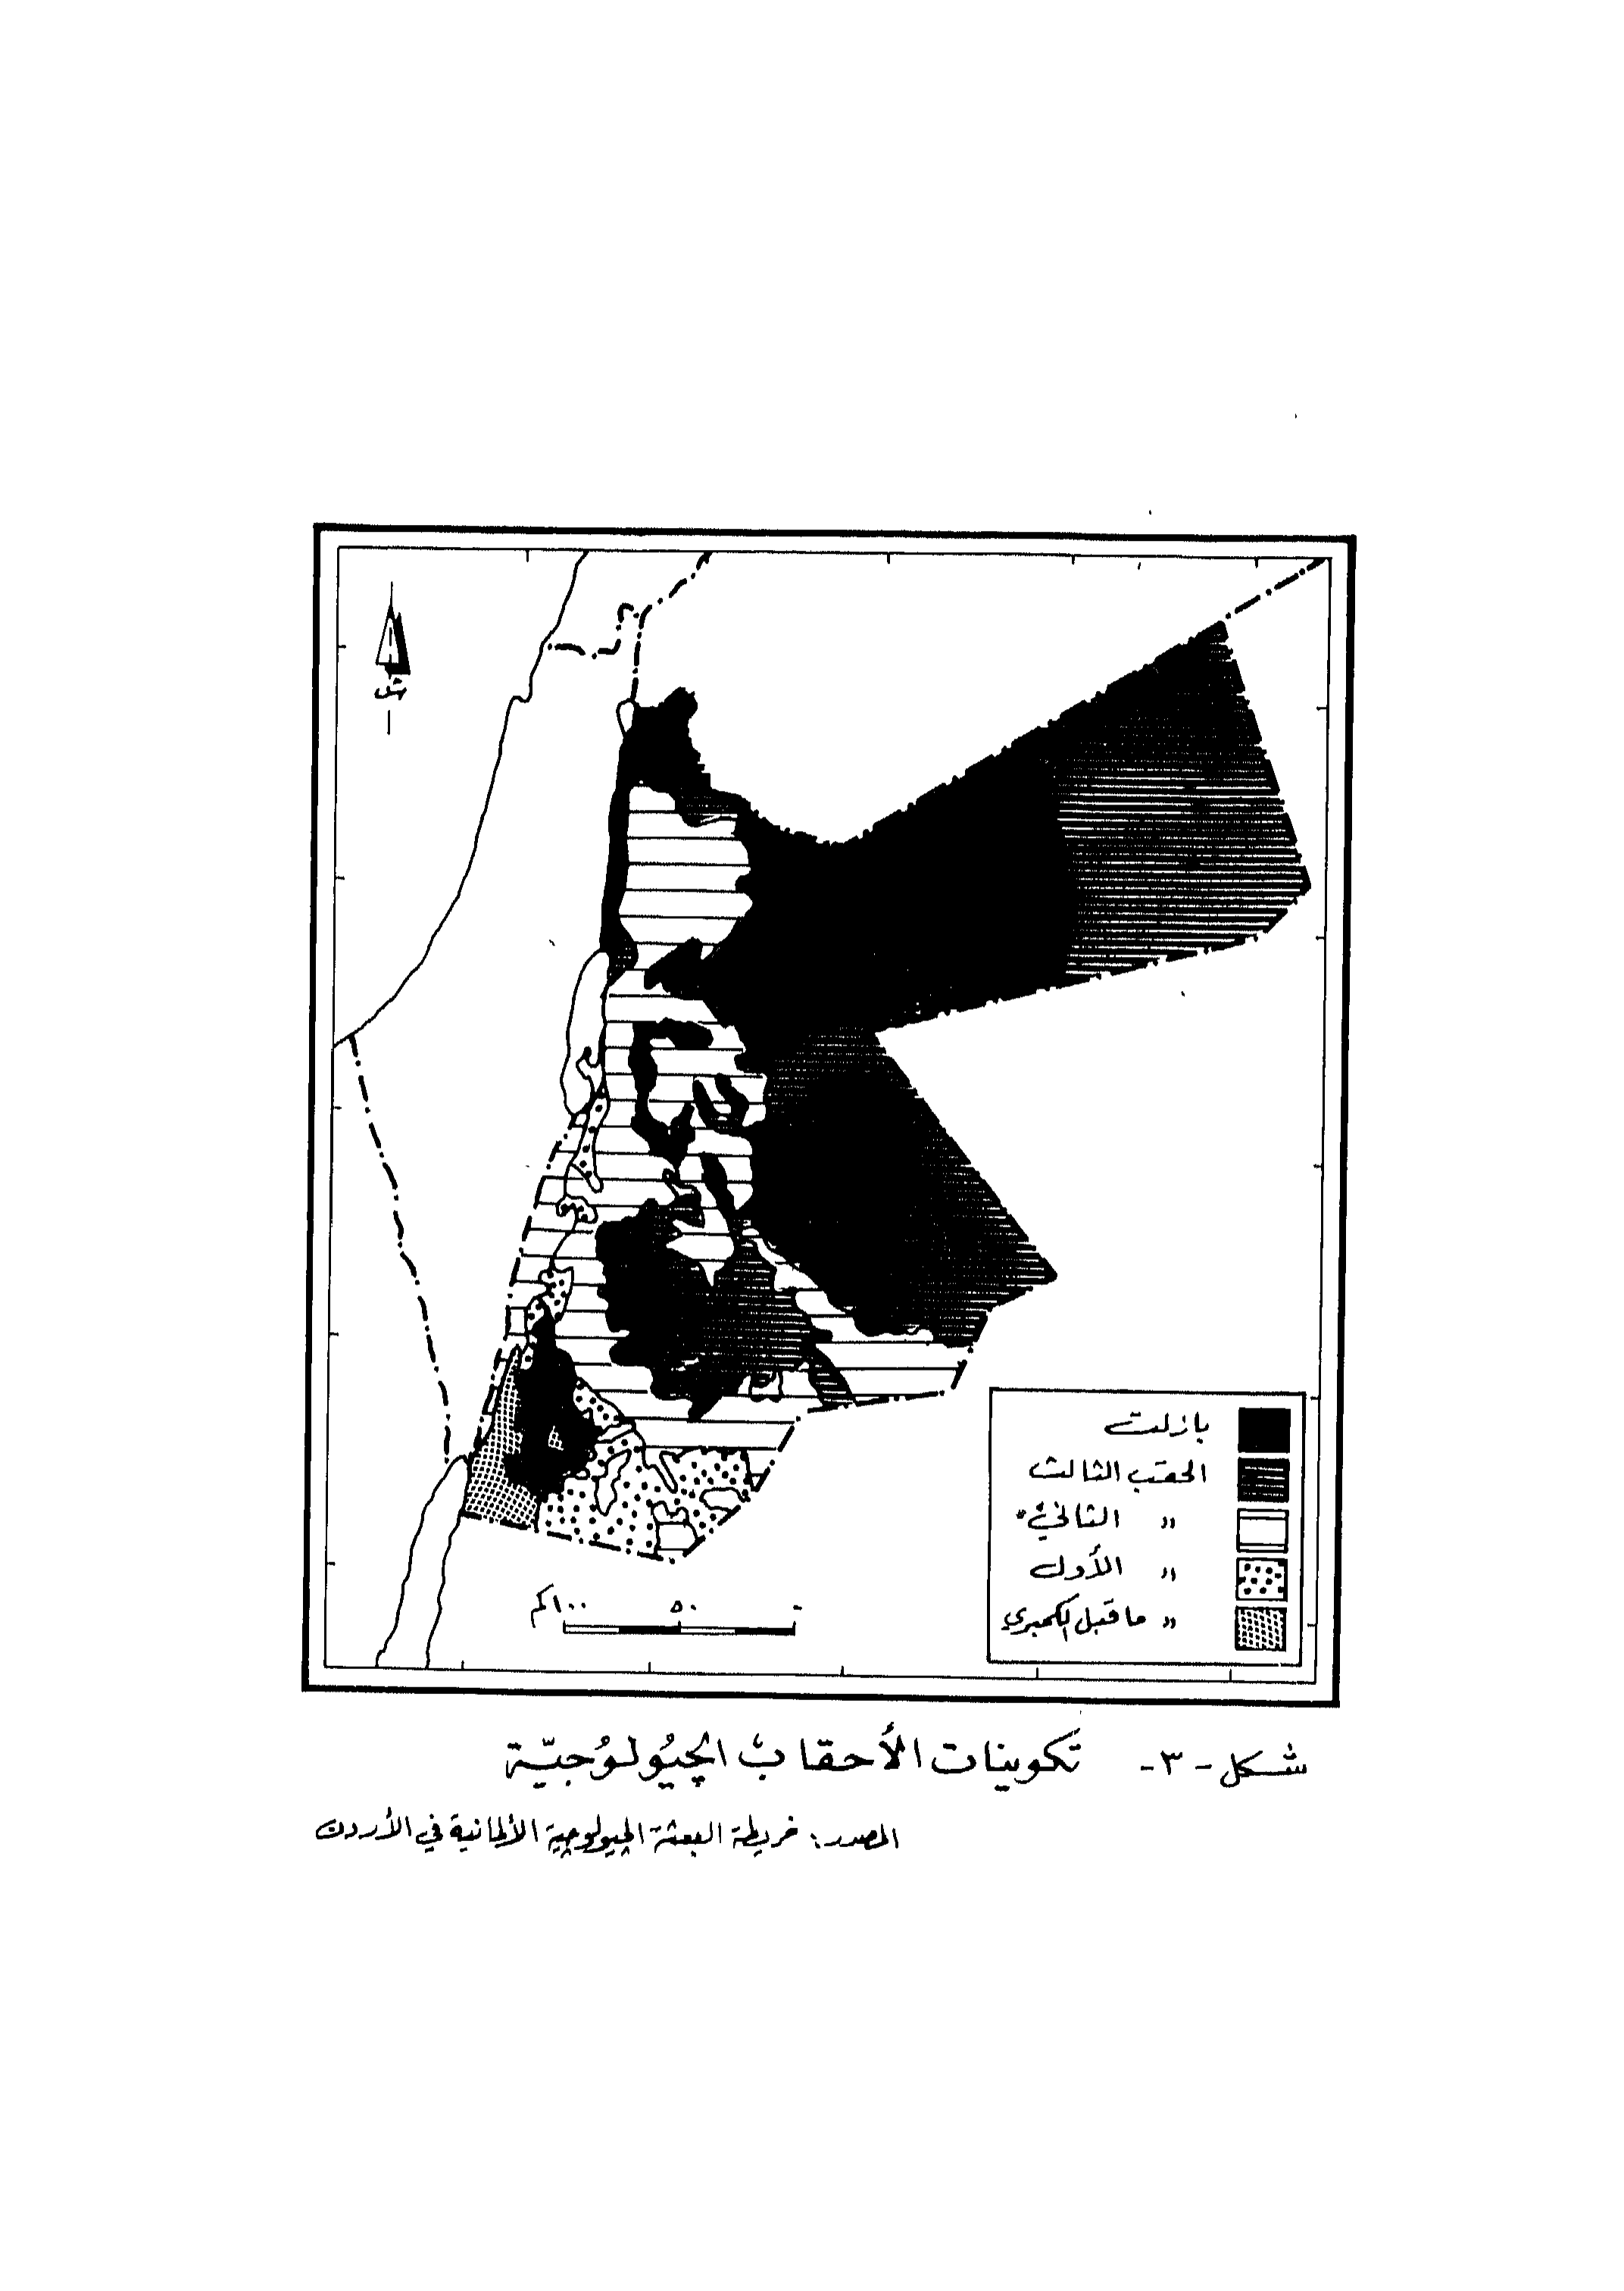 شمال
بازلت
الحقب الثالث
" الثاني
" الأول
" ماقبل الكمبري
١٠٠كم ٥٠ ٠
شكل -٣- تكوينات الأحقاب الجيُولوُجيّة
المصدر: خريطة البعثة الجيولوجية الألمانية في الأردن